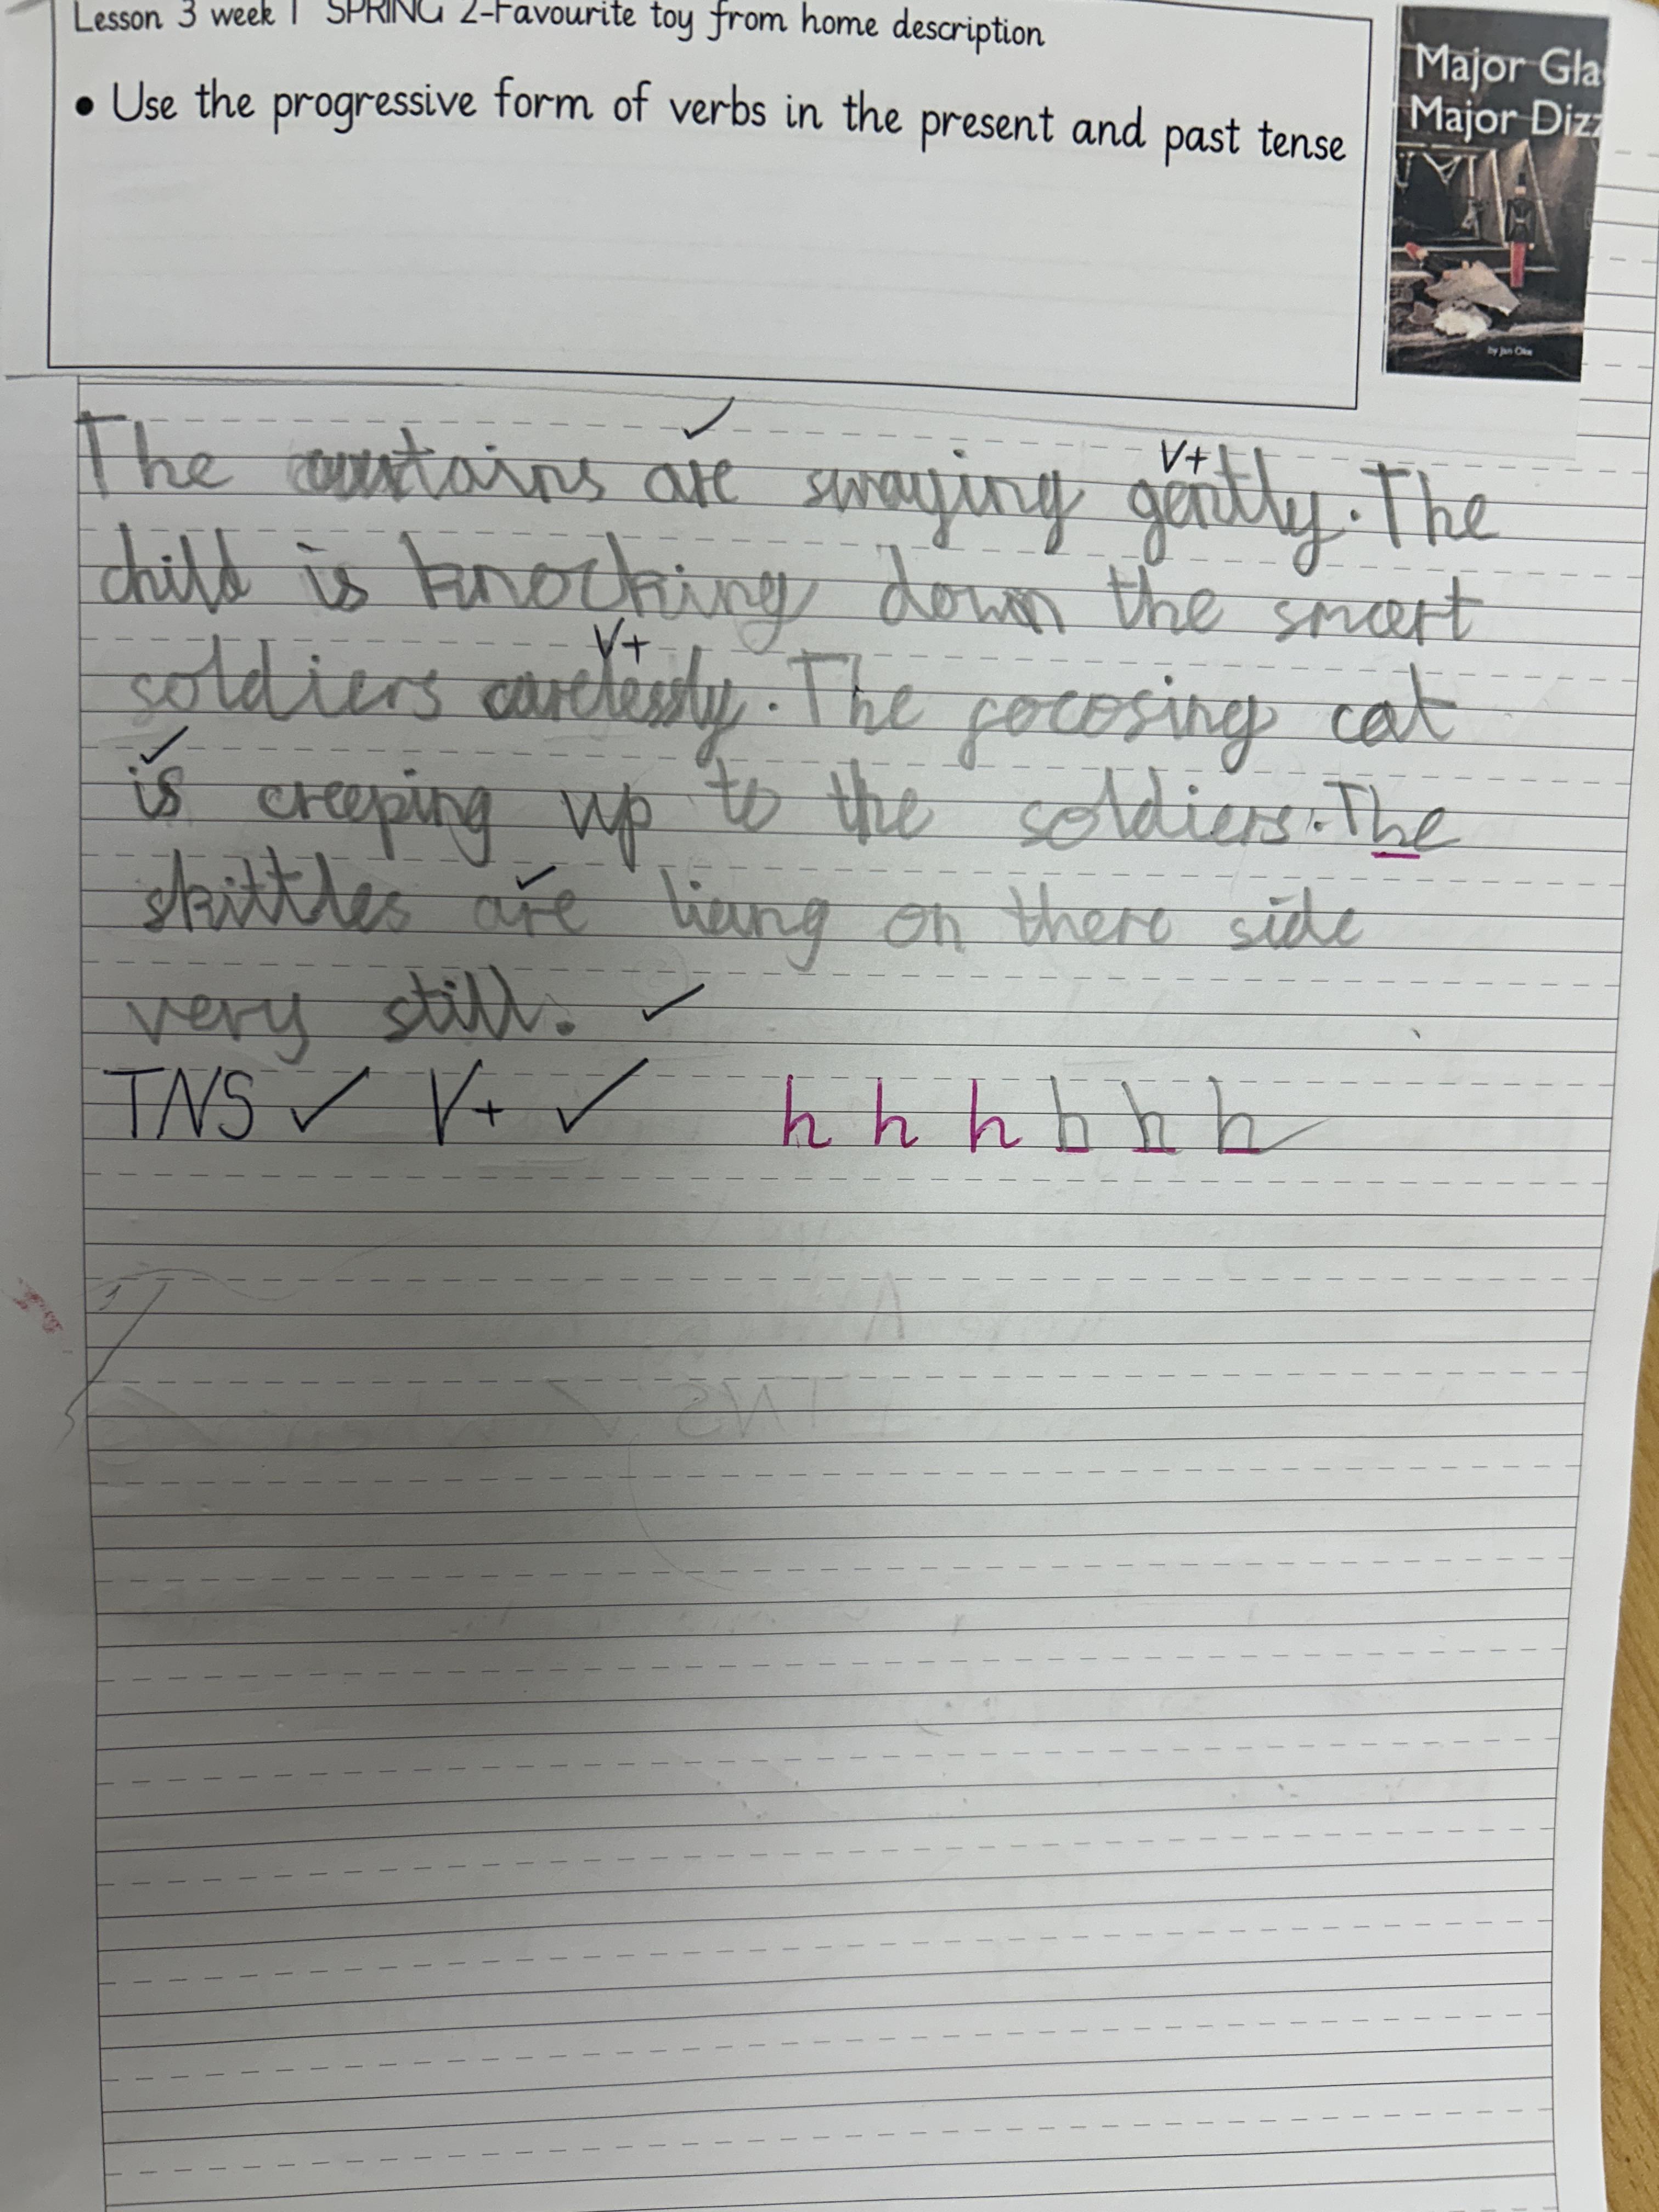 Lesson 3 week 1 SPRING 2-Favourite toy from home description
• Use the progressive form of verbs in the present and past tense
Major Gla
Major Dizz
by Jan Oke
The curtains are swaying gently. The
child is knocking down the smart
soldiers carelessly. The focosing cat
is creeping up to the soldiers. The
skittles are lieing on there side
very still.
✓
V+
V+
✓
✓
✓
TNS ✓ V+ ✓ h h h h h h